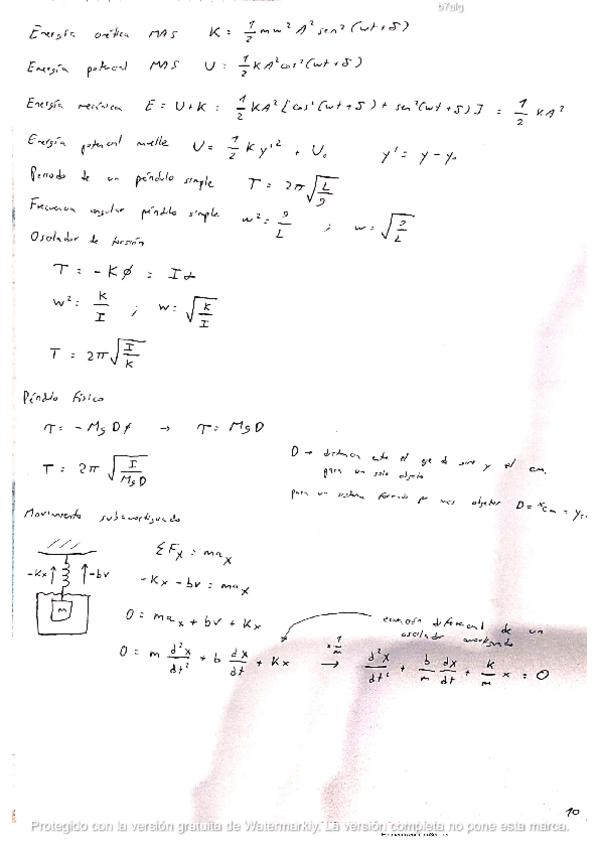 b7alg
Energía cinética MAS K = 1/2 m w² A² sen² (wt + δ)
Energía potencial MAS U = 1/2 K A² cos² (wt + δ)
Energía mecánica E = U + K = 1/2 K A² [cos² (wt + δ) + sen² (wt + δ)] = 1/2 K A²
Energía potencial muelle U = 1/2 K y'² + U₀ y' = y - y₀
Periodo de un péndulo simple T = 2π √(L/g)
Frecuencia angular péndulo simple w² = g/L ; w = √(g/L)
Oscilador de torsión
τ = - K φ = I α
w² = K/I ; w = √(K/I)
T = 2π √(I/K)
Péndulo físico
τ = - M g D φ → τ = M g D
T = 2π √(I/MgD)
D → distancia entre el eje de giro y el cm.
para un solo objeto
para un sistema formado por mas objetos D = x cm = y
Movimiento subamortiguado
-Kx -bv
m
Σ Fx = m ax
- Kx - bv = m ax
0 = m ax + bv + Kx
ecuación diferencial de un
oscilador amortiguado
0 = m d²x/dt² + b dx/dt + Kx x 1/m → d²x/dt² + b/m dx/dt + K/m x = 0
10
Protegido con la versión gratuita de Watermarkly. La versión completa no pone esta marca.